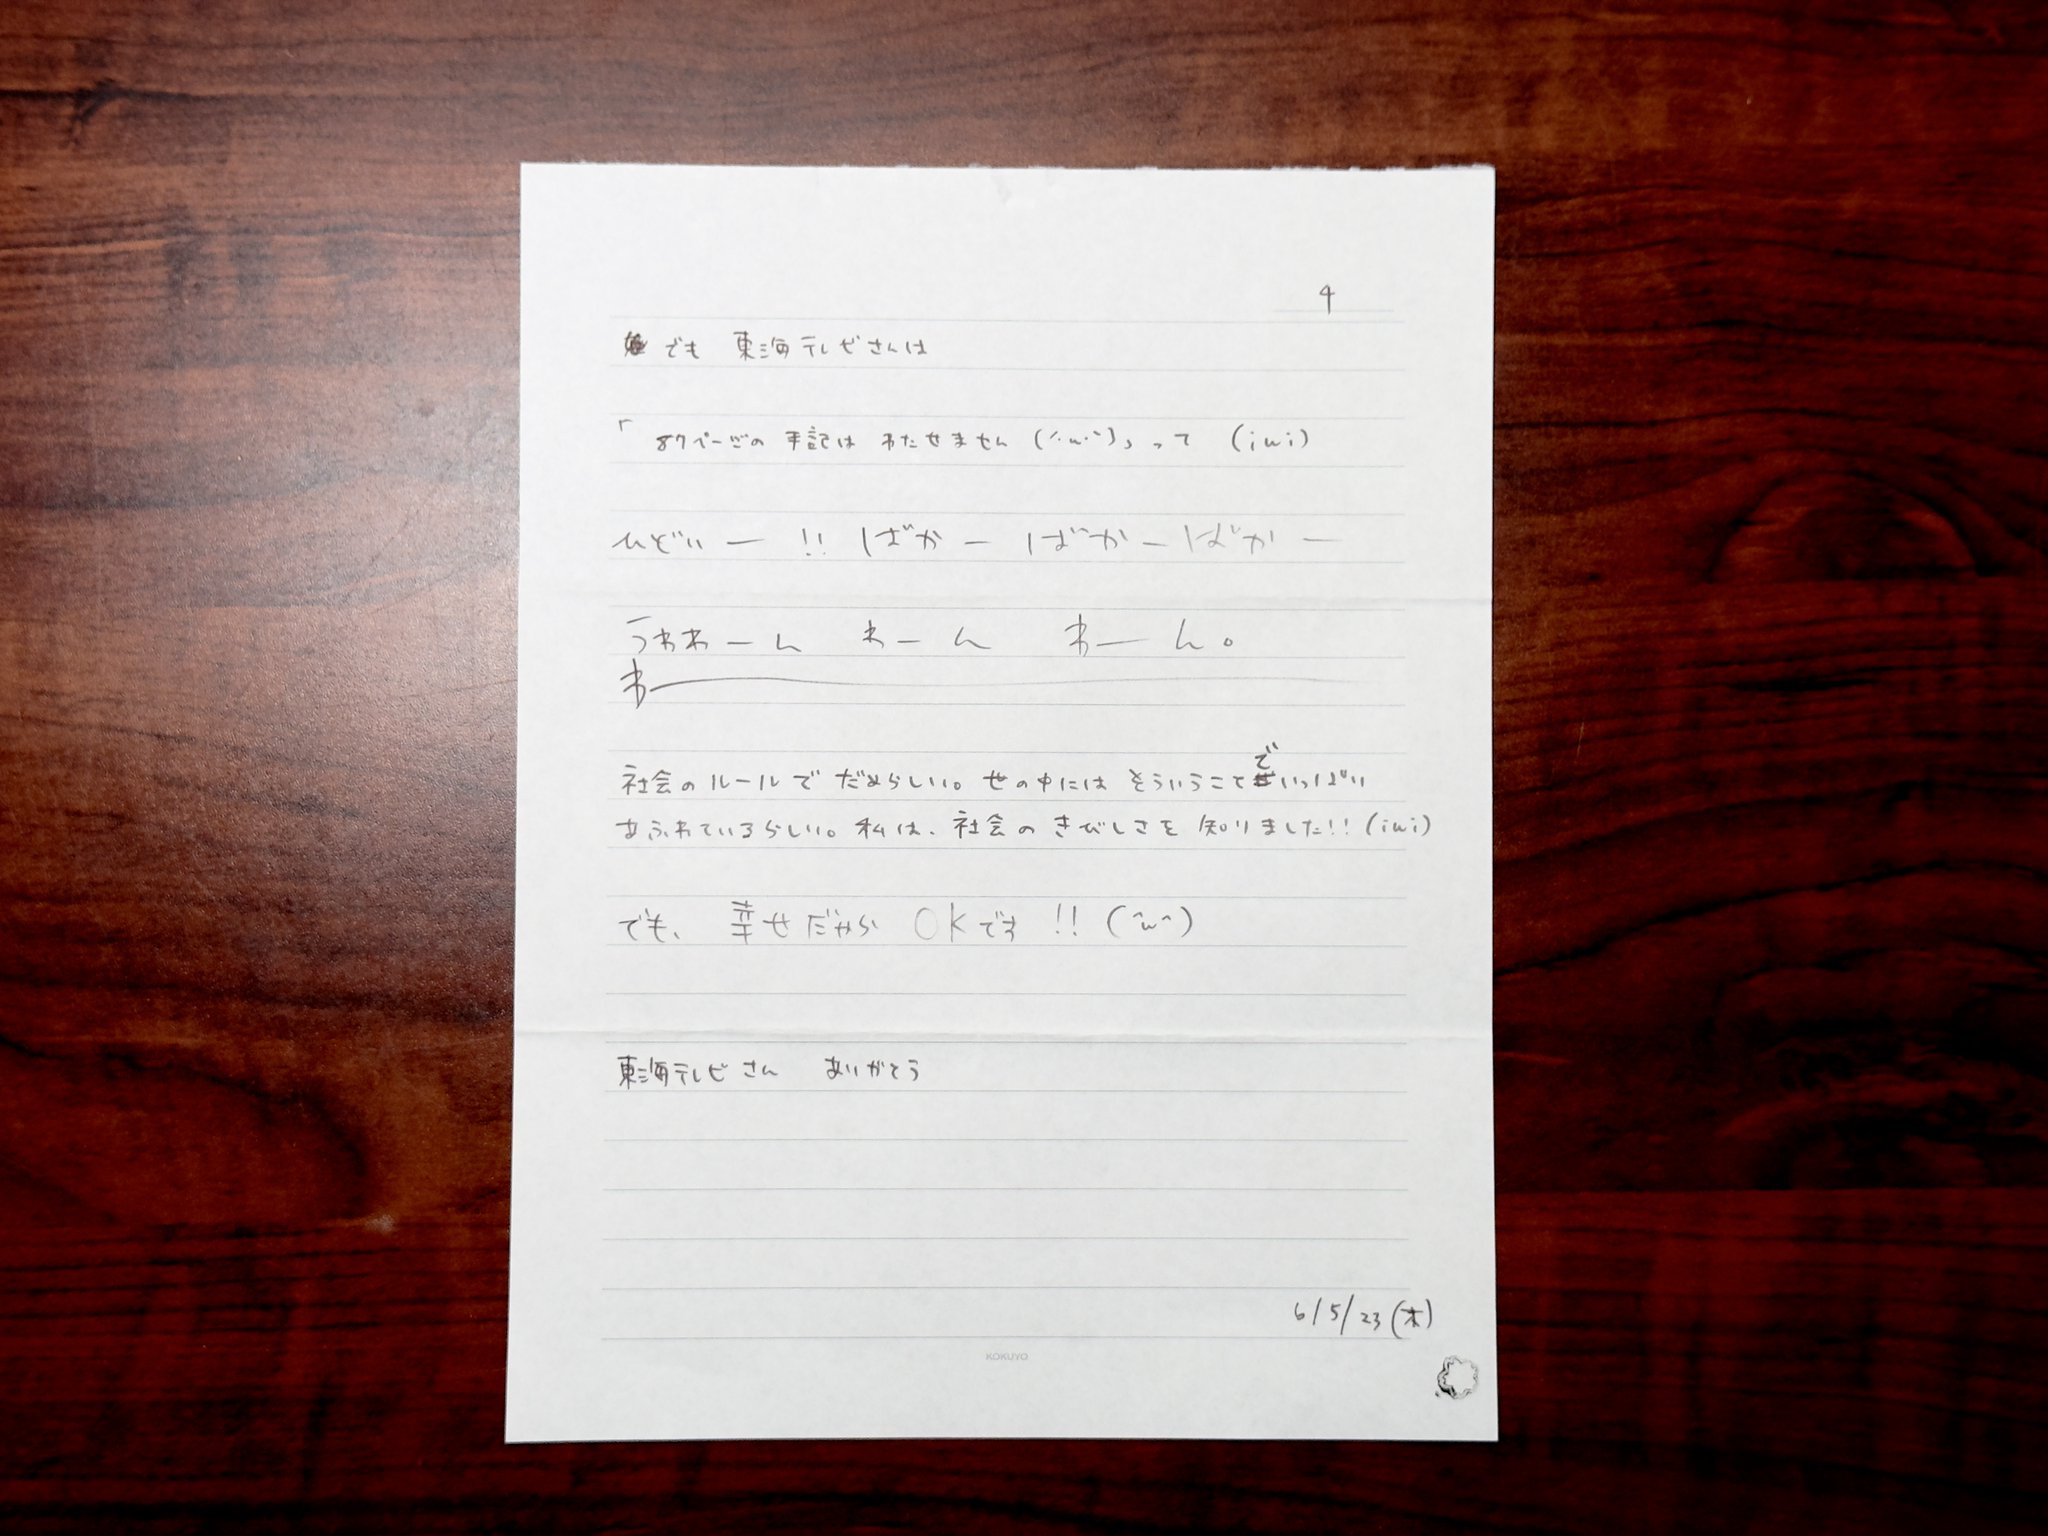 4
でも 東海テレビさんは
「87ページの手記は わたせません(´･ω･`)」って (iωi)
ひどいー!! ばかーばかーばかー
うわわーん わーん わーん。
わー
社会のルールで だめらしい。世の中には そういうことでいっぱい
あふれているらしい。私は、社会の きびしさを 知りました!!(iωi)
でも、 幸せだから OKです!!(^ω^)
東海テレビさん ありがとう
6/5/23(木)
KOKUYO